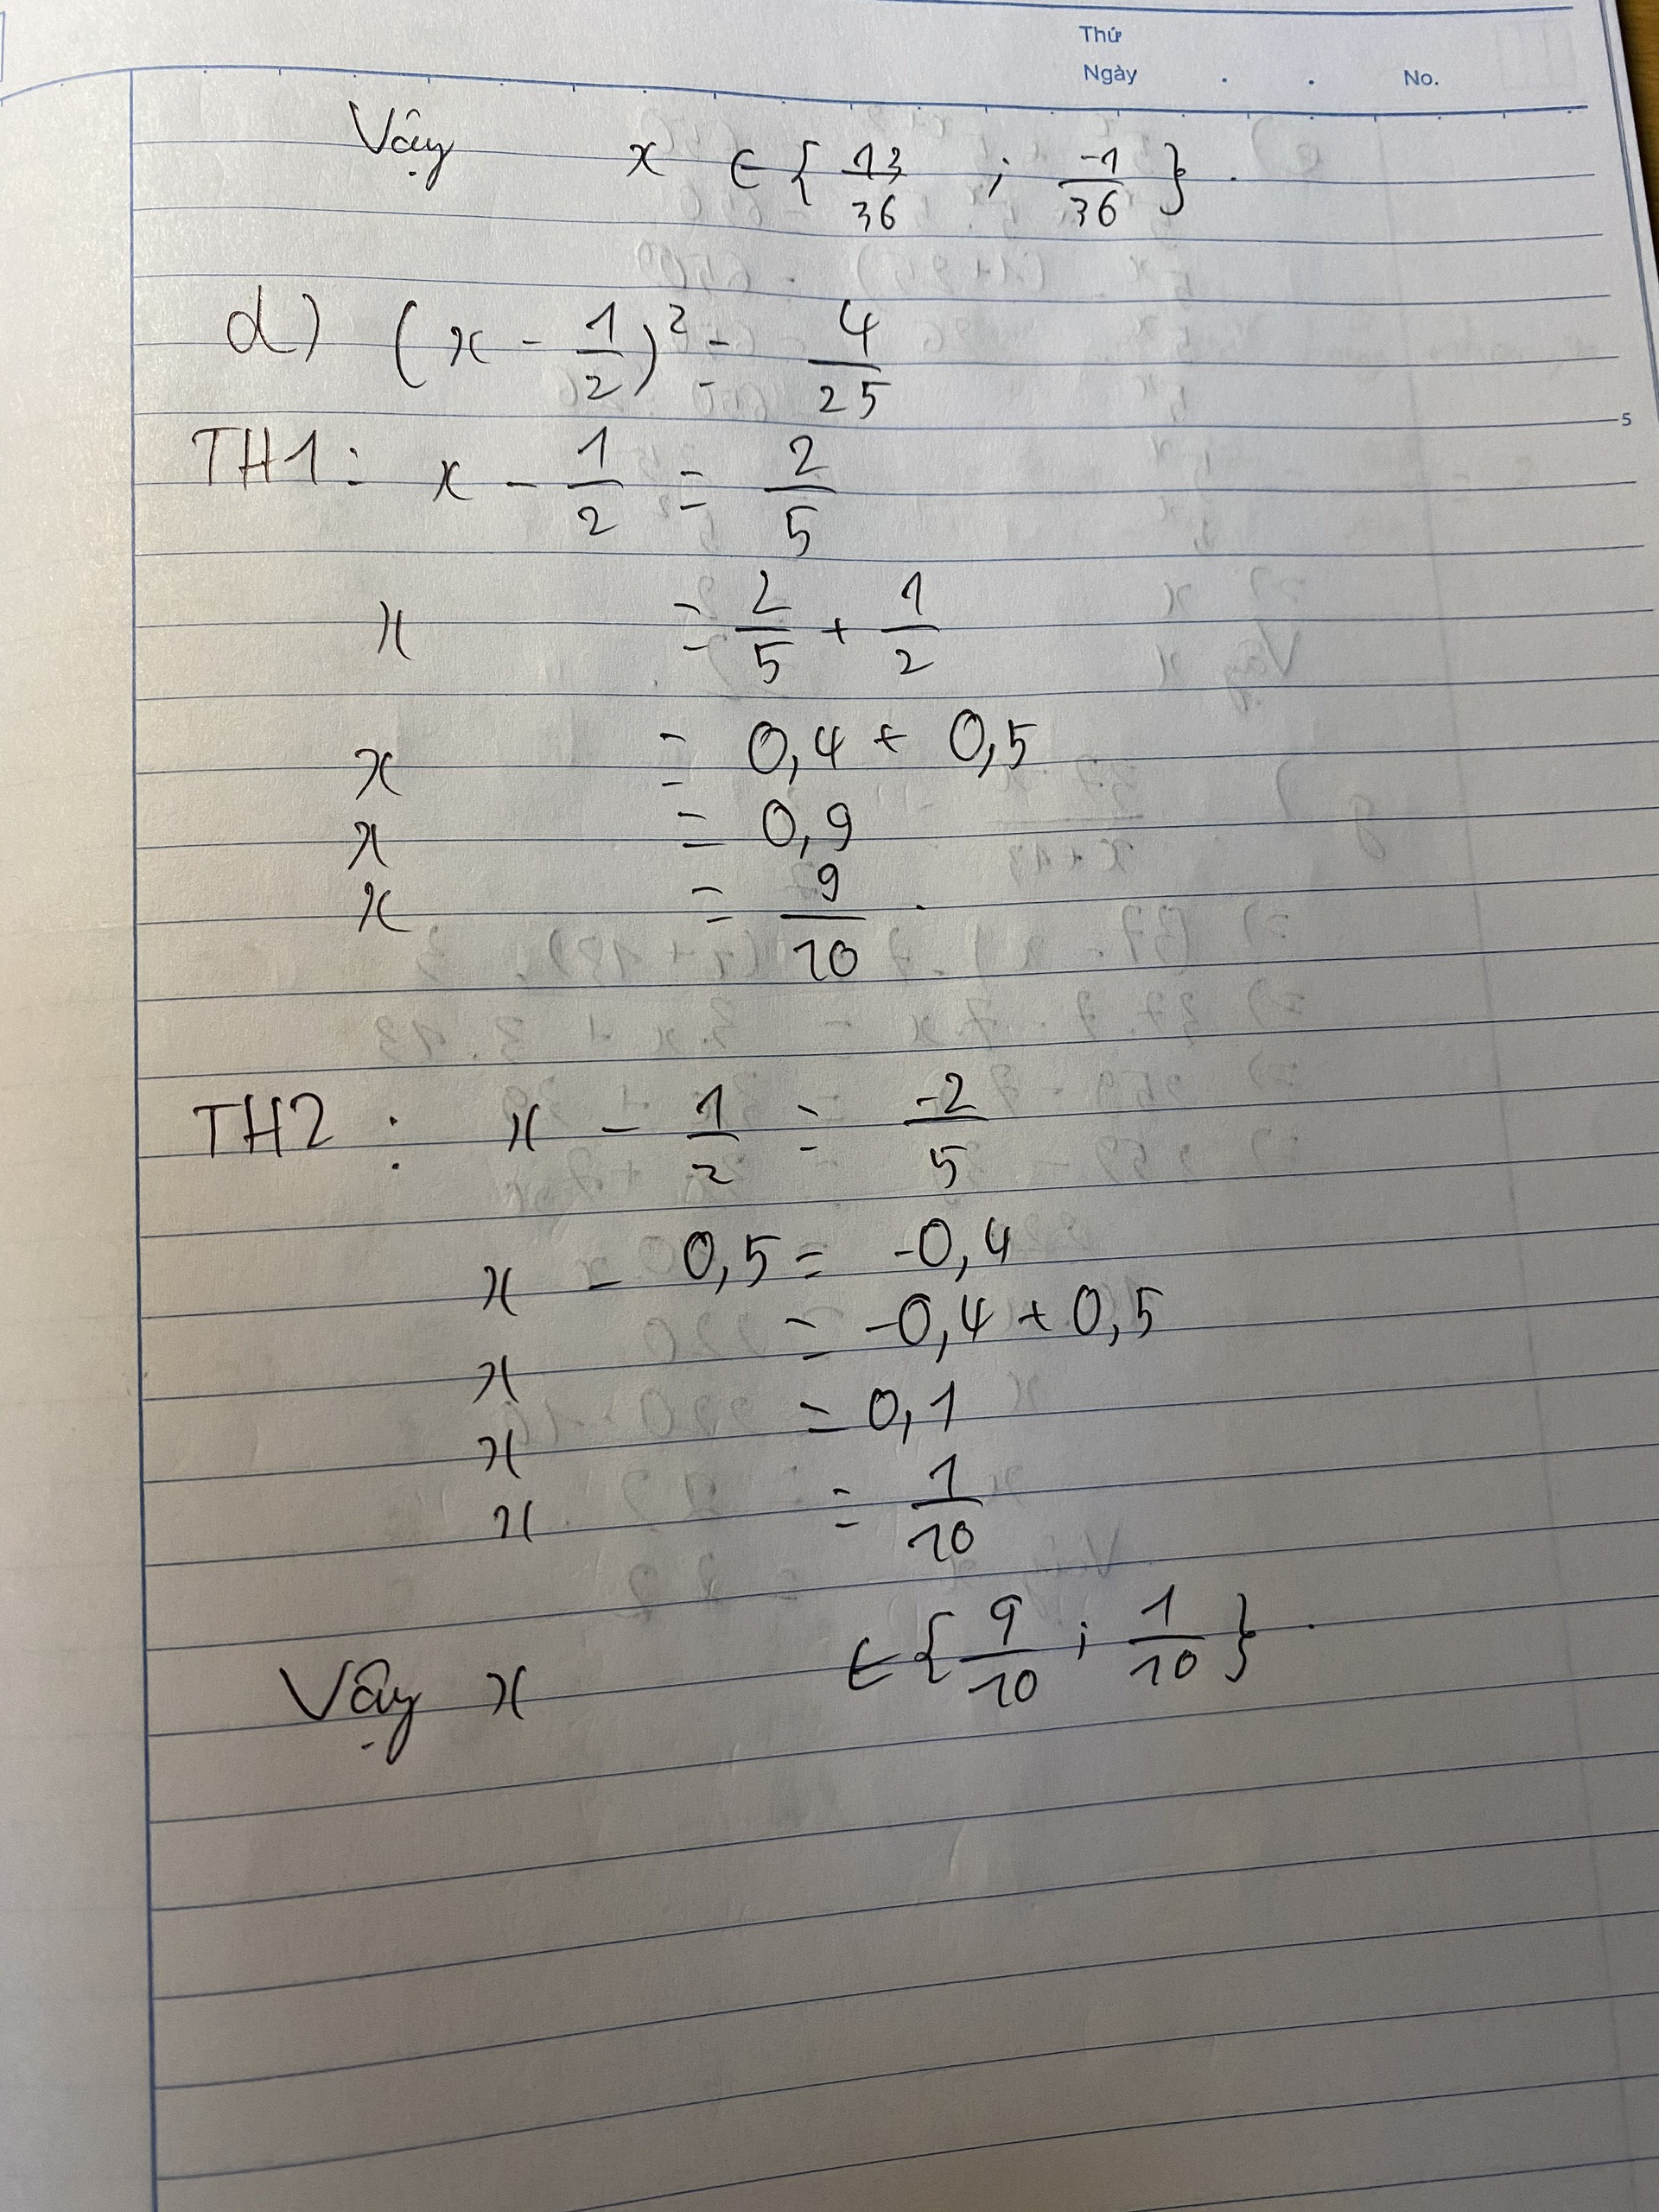 Thứ
Ngày . . No.
Vậy x ∈ { 13/36 ; -1/36 } .
d) (x - 1/2)² = 4/25
5
TH1: x - 1/2 = 2/5
x = 2/5 + 1/2
x = 0,4 + 0,5
x = 0,9
x = 9/10 .
TH2 : x - 1/2 = -2/5
x - 0,5 = -0,4
x = -0,4 + 0,5
x = 0,1
x = 1/10
Vậy x ∈ { 9/10 ; 1/10 } .